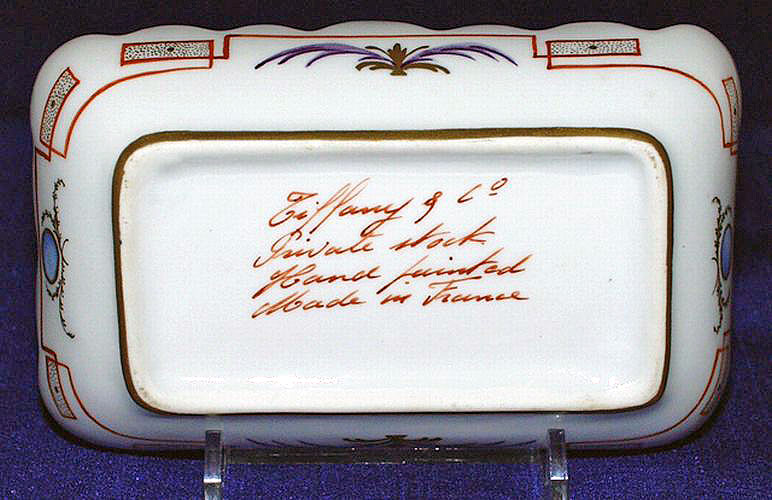 Tiffany & Co
Private stock
Hand painted
Made in France